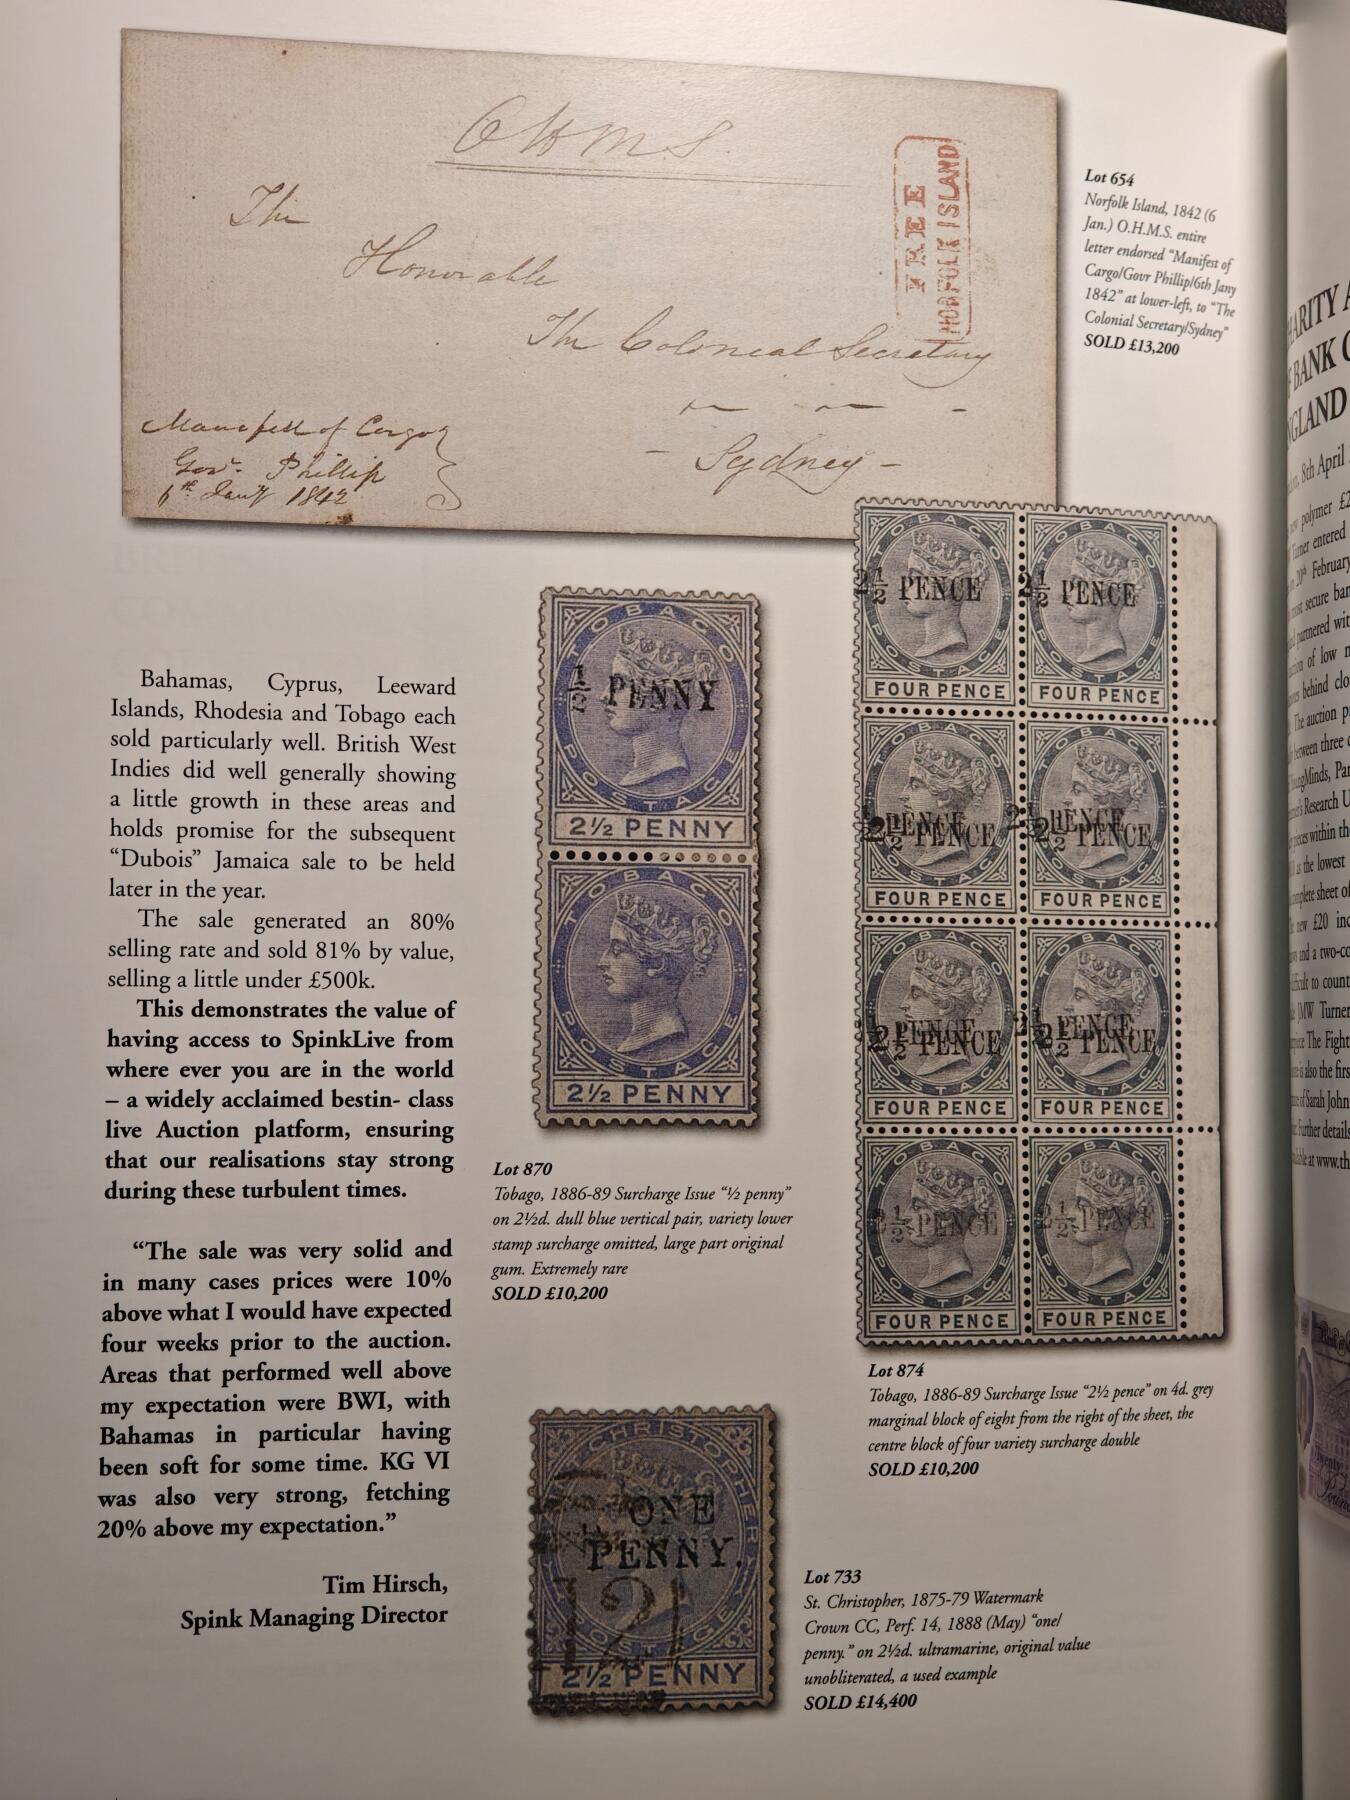 O H M S.
The
Honorable
The Colonial Secretary
- Sydney -
Manifest of Cargo
Govr. Phillip
6th Jany 1842
FREE
NORFOLK ISLAND
Lot 654
Norfolk Island, 1842 (6
Jan.) O.H.M.S. entire
letter endorsed “Manifest of
Cargo/Govr Phillip/6th Jany
1842” at lower-left, to “The
Colonial Secretary/Sydney”
SOLD £13,200
TOBAGO
½ PENNY
POSTAGE
2½ PENNY
TOBAGO
POSTAGE
2½ PENNY
TOBAGO
2½ PENCE
POSTAGE
FOUR PENCE
TOBAGO
2½ PENCE
POSTAGE
FOUR PENCE
TOBAGO
2½ PENCE
2½ PENCE
POSTAGE
FOUR PENCE
TOBAGO
2½ PENCE
2½ PENCE
POSTAGE
FOUR PENCE
TOBAGO
2½ PENCE
2½ PENCE
POSTAGE
FOUR PENCE
TOBAGO
2½ PENCE
2½ PENCE
POSTAGE
FOUR PENCE
TOBAGO
2½ PENCE
POSTAGE
FOUR PENCE
TOBAGO
2½ PENCE
POSTAGE
FOUR PENCE
Bahamas, Cyprus, Leeward
Islands, Rhodesia and Tobago each
sold particularly well. British West
Indies did well generally showing
a little growth in these areas and
holds promise for the subsequent
“Dubois” Jamaica sale to be held
later in the year.
The sale generated an 80%
selling rate and sold 81% by value,
selling a little under £500k.
This demonstrates the value of
having access to SpinkLive from
where ever you are in the world
– a widely acclaimed bestin- class
live Auction platform, ensuring
that our realisations stay strong
during these turbulent times.
“The sale was very solid and
in many cases prices were 10%
above what I would have expected
four weeks prior to the auction.
Areas that performed well above
my expectation were BWI, with
Bahamas in particular having
been soft for some time. KG VI
was also very strong, fetching
20% above my expectation.”
Tim Hirsch,
Spink Managing Director
Lot 870
Tobago, 1886-89 Surcharge Issue “½ penny”
on 2½d. dull blue vertical pair, variety lower
stamp surcharge omitted, large part original
gum. Extremely rare
SOLD £10,200
Lot 874
Tobago, 1886-89 Surcharge Issue “2½ pence” on 4d. grey
marginal block of eight from the right of the sheet, the
centre block of four variety surcharge double
SOLD £10,200
CHRISTOPHER
ONE
PENNY.
12
POSTAGE
2½ PENNY
Lot 733
St. Christopher, 1875-79 Watermark
Crown CC, Perf. 14, 1888 (May) “one/
penny.” on 2½d. ultramarine, original value
unobliterated, a used example
SOLD £14,400
BANK
8th April
polymer
Turner entered
February
most secure
partnered
of low
behind
The auction
between three
YoungMinds,
Research
pieces within the
as the lowest
complete sheet of
new £20
and a
difficult to
JMW Turner
The
is also the
of Sarah John
Further details
at